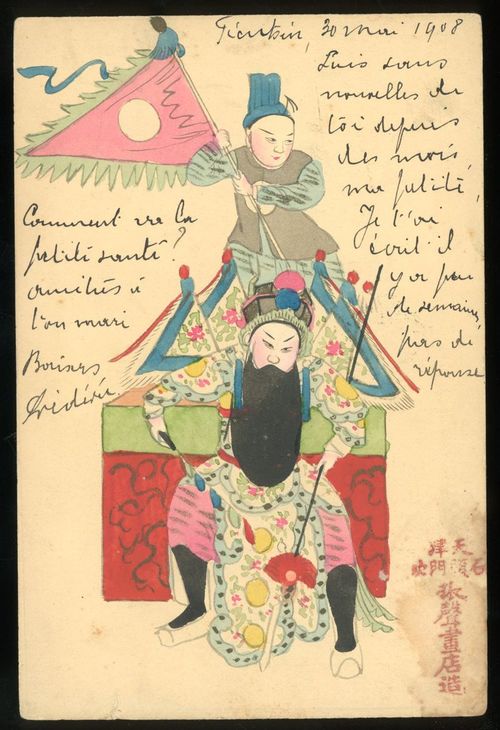 Tientsin, 30 mai 1908
Suis sans
nouvelles de
toi depuis
des mois,
ma petite,
Je t'ai
écrit il
y a pas
de semaines,
pas de
réponse
Comment va la
petite santé?
amitiés à
ton mari
Baisers
Frédéric
天
石
門
振聲畫店造